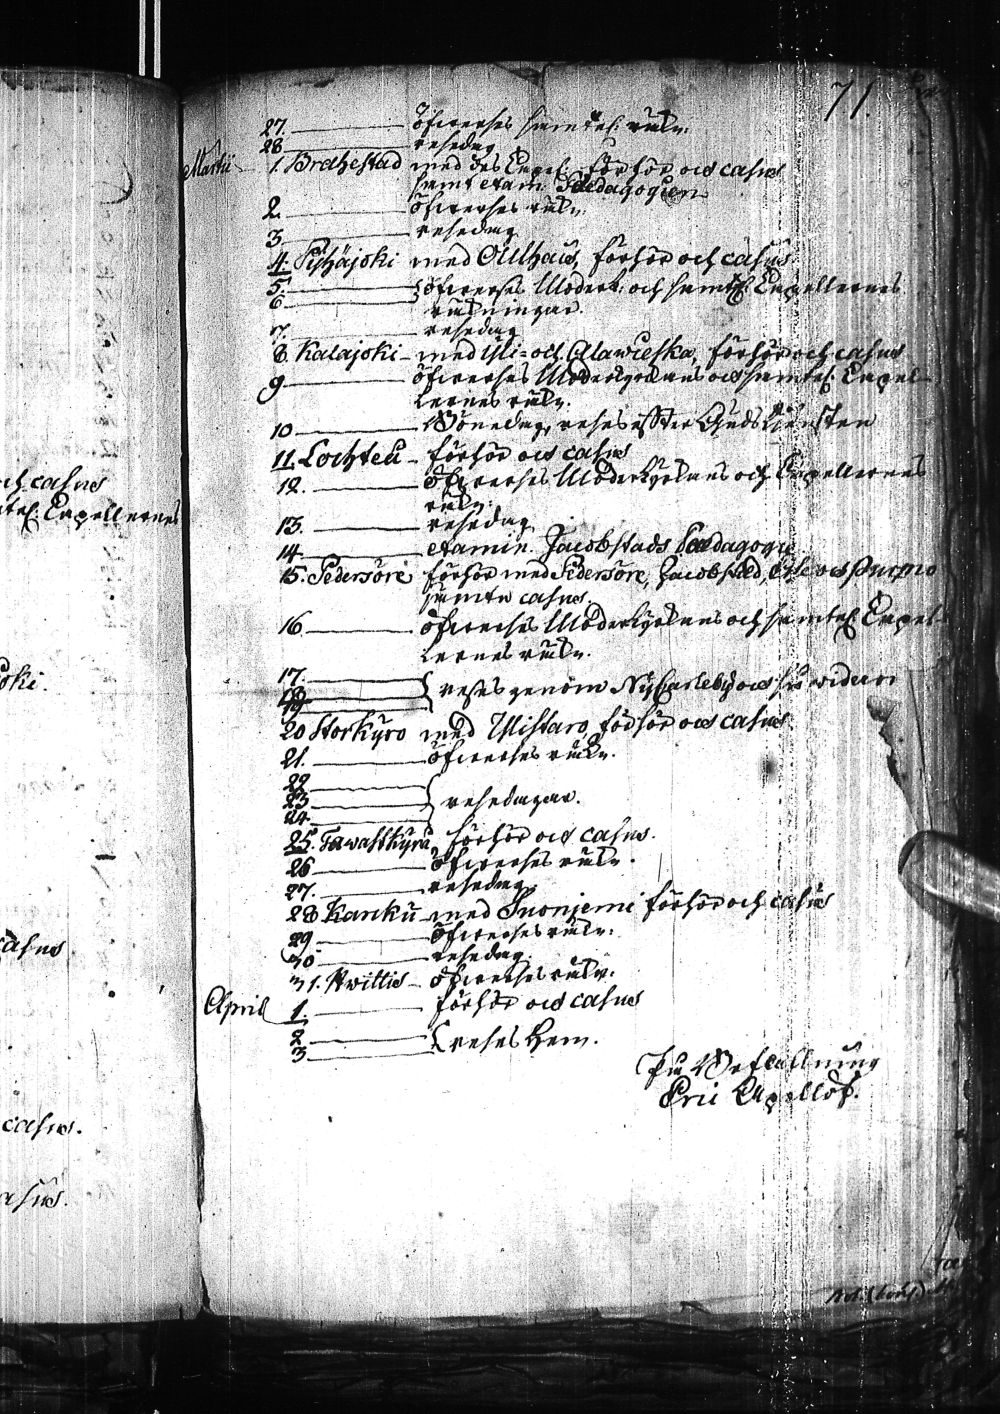 71.
27. öfwerses samtel. räkn.
28 resedag
Martii 1. Brahestad med des Capel. förhör och casus
samt exam. Pædagogien
2. öfwerses räkn.
3. resedag
4. Pyhäjoki med Oulhais, förhör och casus
5. öfwerses Moderk: och samtel. Capellernes
6 räkningar.
7. resedag
8. Kalajoki med Yli- och Alawieska, förhör och casus
9 öfwerses Moderkyrkans och samtel. Capel-
lernes räkn.
10 Bönedag, reses efter Gudstiensten
11. Lochteå förhör och casus
12. öfwerses Moderkyrkans och Capellernes
räkn.
13. resedag
14 examin. Jacobstads Pædagogie
15. Pedersöre förhör med Pedersöre, Jacobstad, Esse och Purmo
samt casus.
16 öfwerses Moderkyrkans och samtel. Capel-
lernes räkn.
17.
18 reses genom NyCarleby och så widare
19
20 Storkyro med Ylistaro, förhör och casus
21. öfwerses räkn.
22
23 resedagar.
24
25. Tawastkyrö, förhör och casus.
26 öfwerses räkn.
27. resedag
28 Karcku med Suonjemi förhör och casus
29 öfwerses räkn.
30 resedag.
31. Hwittis öfwerses räkn.
April 1. förhör och casus
2 reses hem.
3
På Befallning
Eric Capellof.
och casus
Capellernes
joki.
casus
casus.
casus.